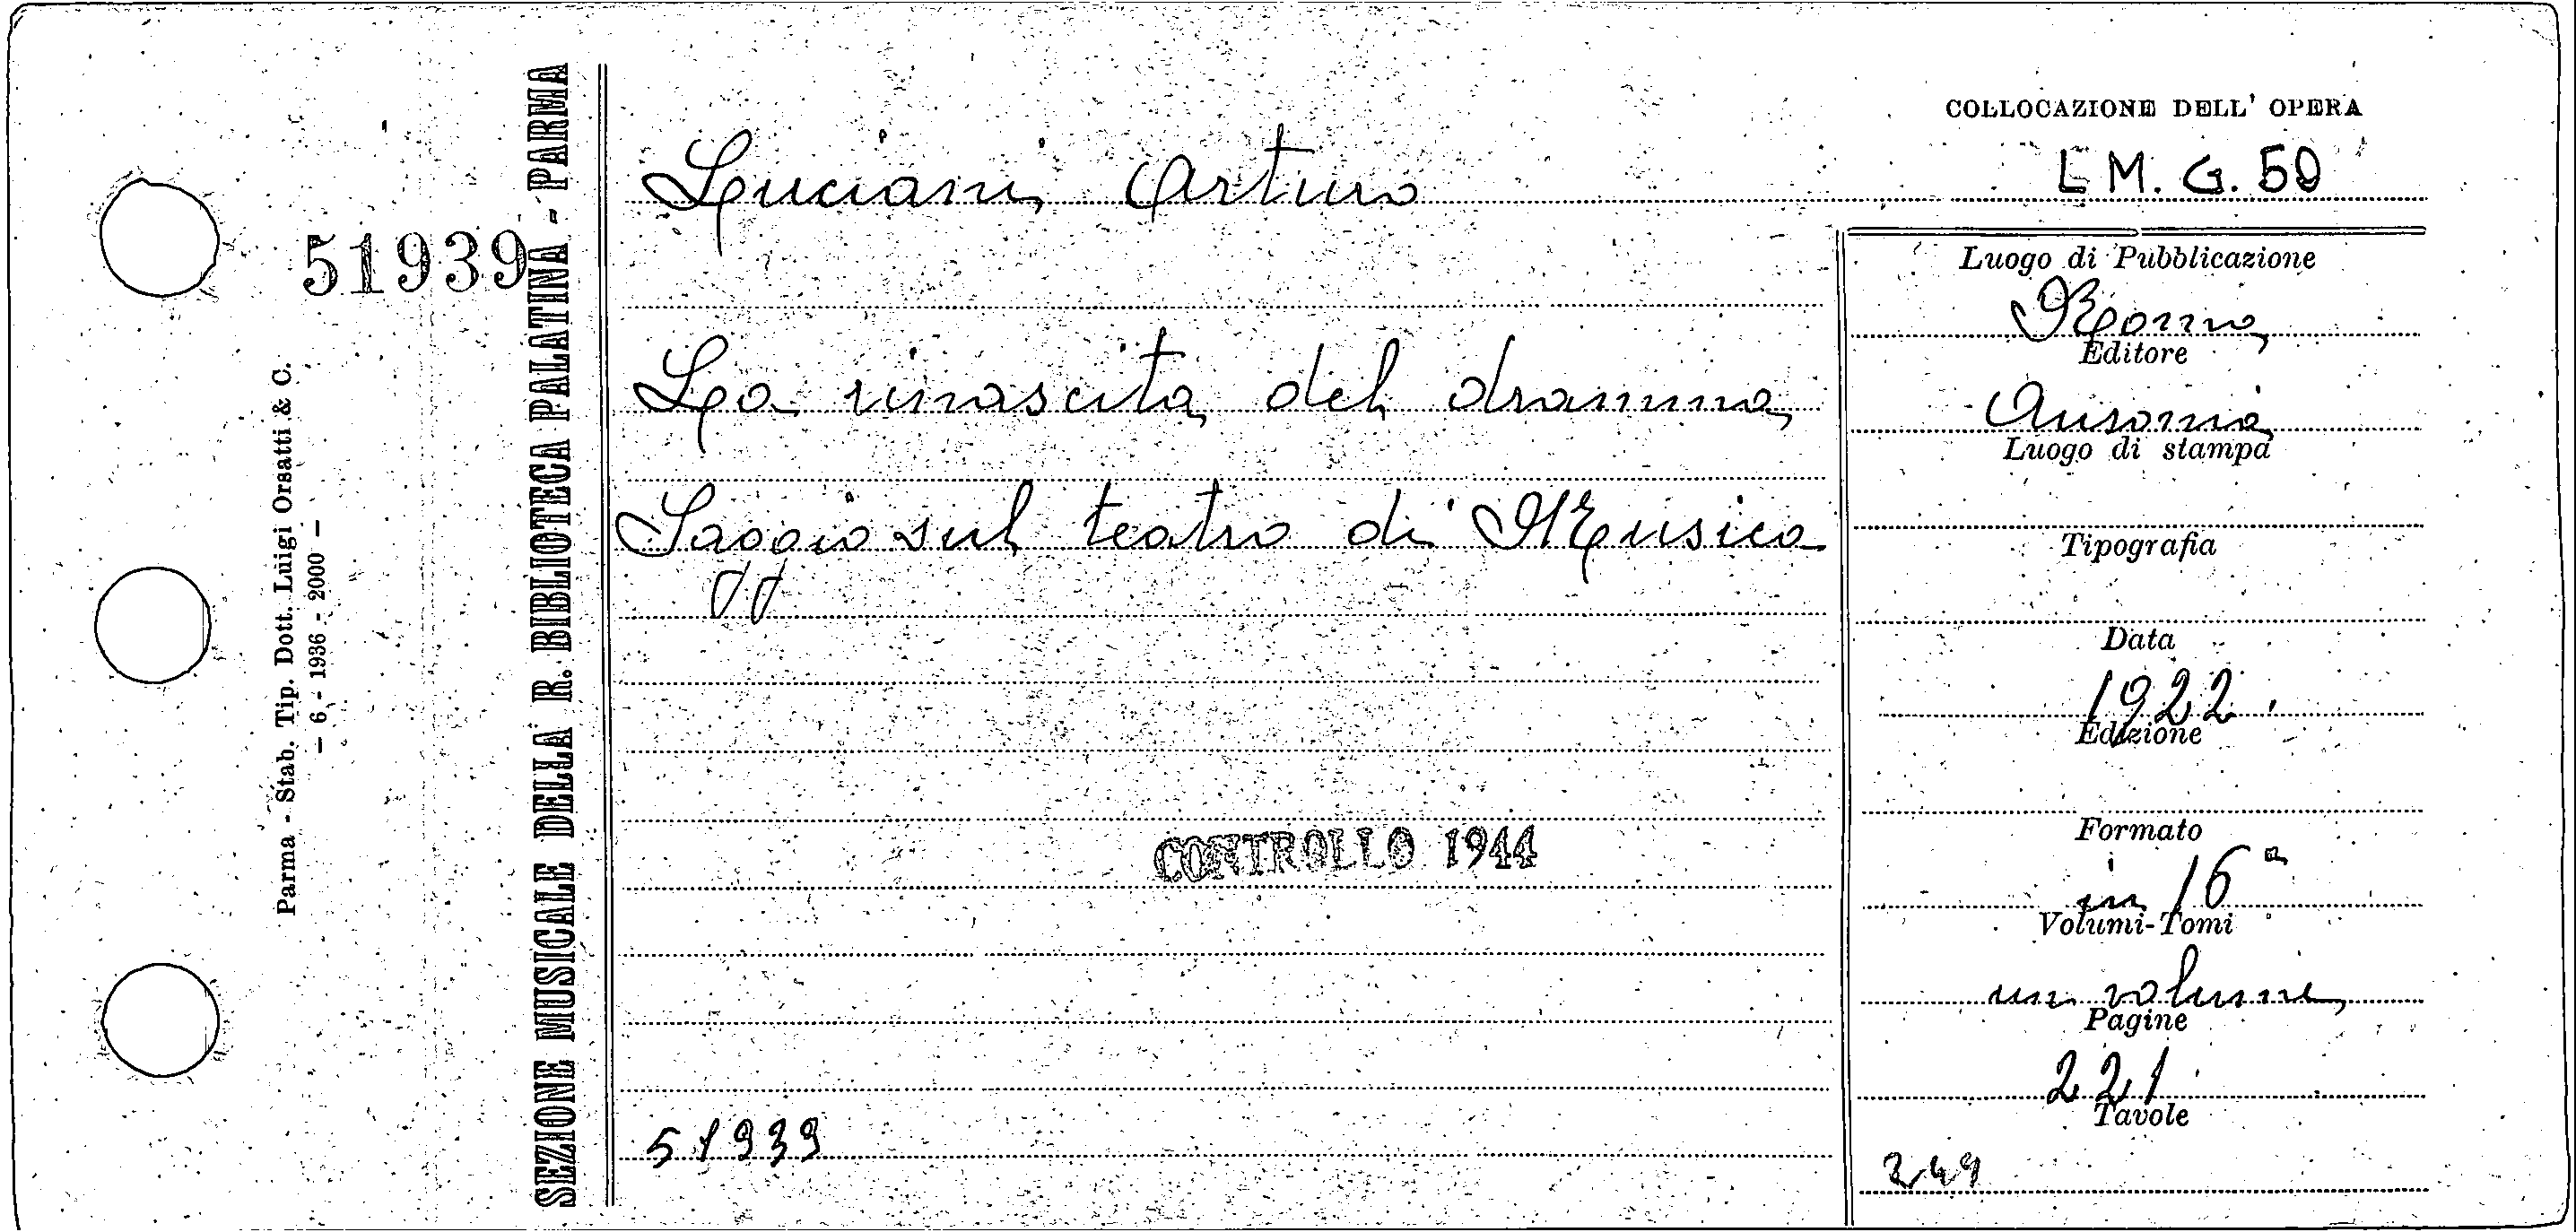 COLLOCAZIONE DELL' OPERA
L M. G. 50
Luciani, Arturo
51939
SEZIONE MUSICALE DELLA R. BIBLIOTECA PALATINA - PARMA
Parma - Stab. Tip. Dott. Luigi Orsatti & C.
– 6 - 1936 - 2000 –
La rinascita del dramma
Saggio sul teatro di Musica
CONTROLLO 1944
51939
Luogo di Pubblicazione
Roma
Editore
Ausonia
Luogo di stampa
Tipografia
Data
1922.
Edizione
Formato
in 16°
Volumi-Tomi
un volume
Pagine
221
Tavole
249